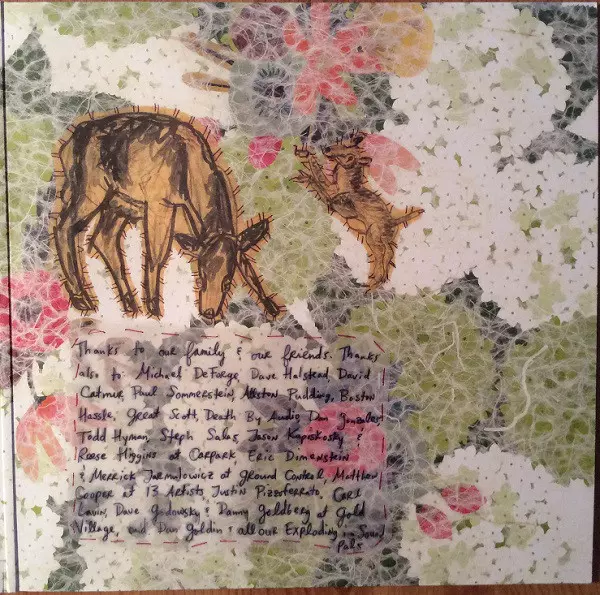 Thanks to our family & our friends. Thanks
also to: Michael DeForge, Dave Halstead, David
Catmur, Paul Sommerstein, Allston Pudding, Boston
Hassle, Great Scott, Death By Audio, Dan Gonzalez
Todd Hyman, Steph Salas, Jason Kapiskosky &
Reese Higgins at Carpark Eric Dimenstein
& Merrick Jarmulowicz at Ground Control, Matthew
Cooper at 13 Artists Justin Pizzoferrato, Carl
Lavin, Dave Godowsky & Danny Goldberg at Gold
Village, and Dan Goldin & all our Exploding in Sound
Pals